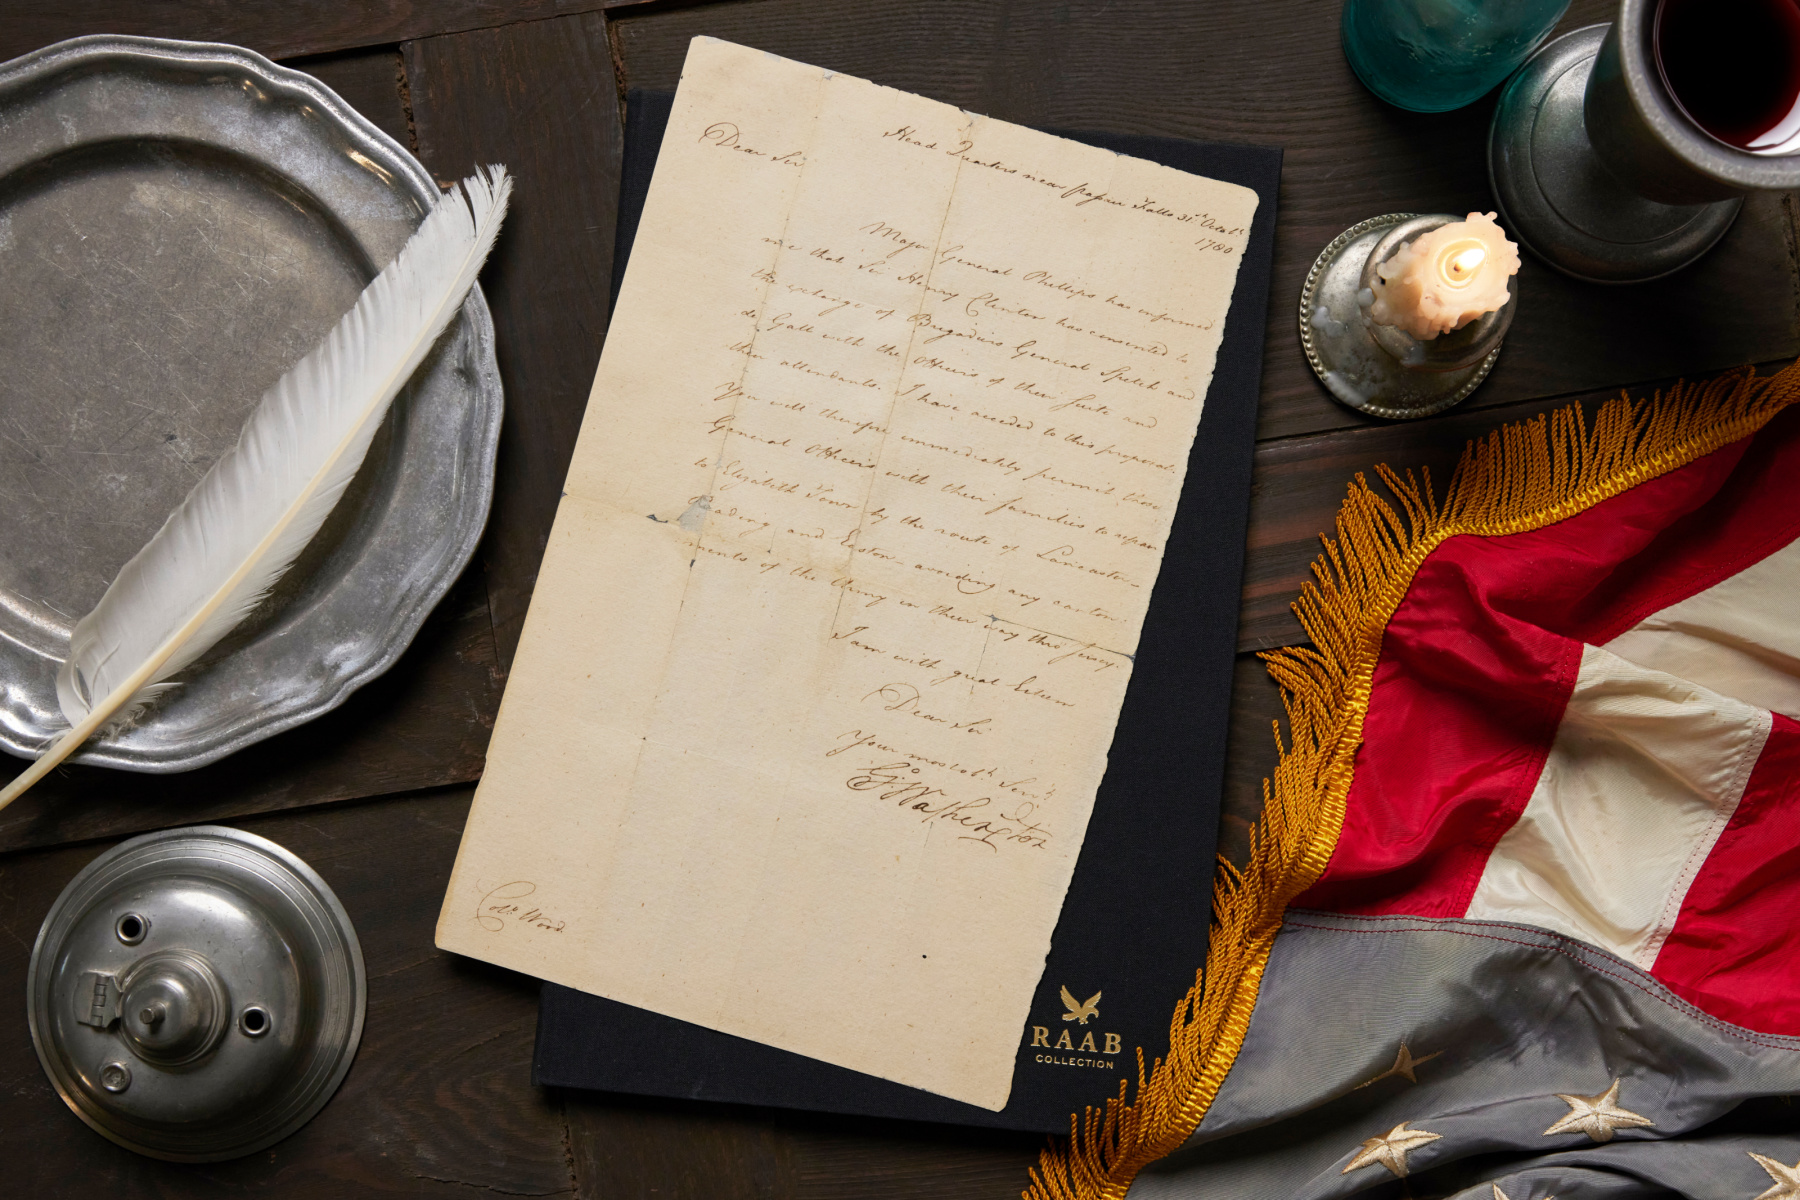 Head Quarters near passaic Falls 31st Octobr
1780
Dear Sir
Major General Phillips has informed
me that Sir Henry Clinton has consented to
the exchange of Brigadiers General Specht and
de Gall with the Officers of their suite and
their attendants. I have acceded to this proposal.
You will therefore immediately permit those
General Officers with their families to repair
to Elizabeth Town by the route of Lancaster-
Reading and Easton - avoiding any canton-
ments of the Army in their way thro' Jersey.
I am with great Esteem
Dear Sir
Your most obt. Servt.
Go: Washington
Colo. Wood
RAAB
COLLECTION